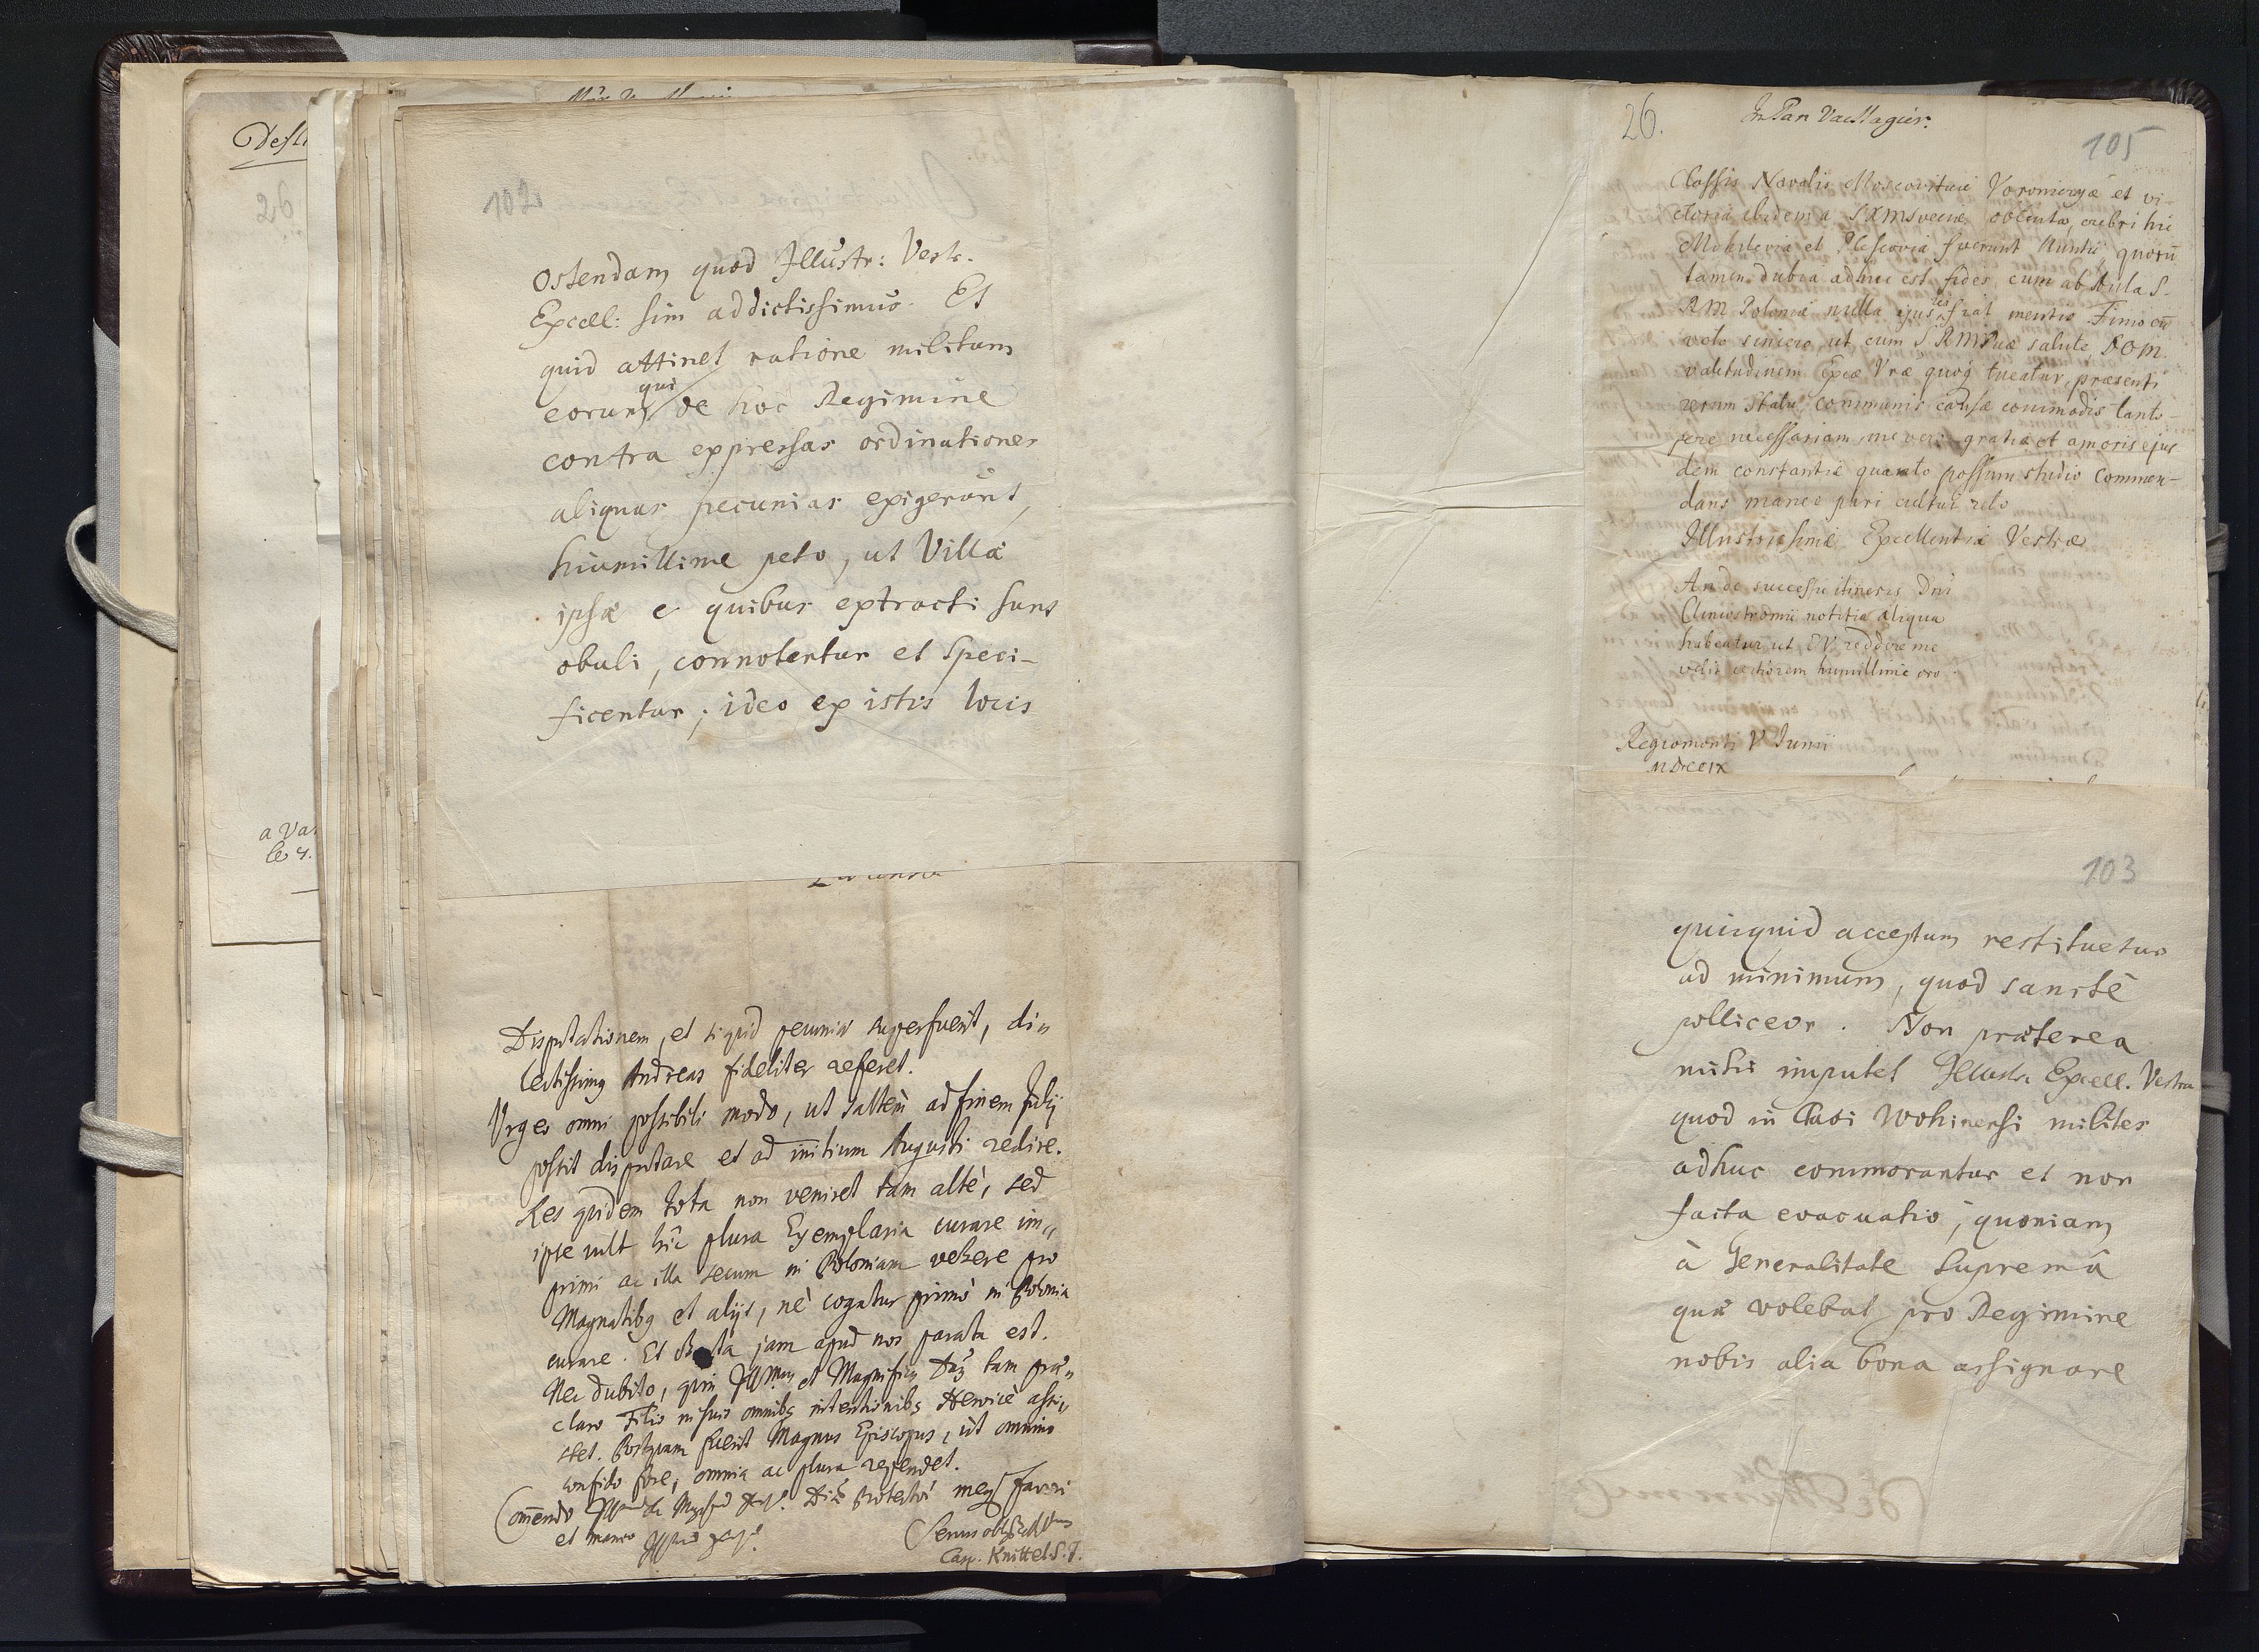 Desti
26
a Var
le 4.
102
Ostendam quod Illustr: Vestr.
Excell: sim addictissimus. Et
quid attinet ratione militum
eorum qui de hoc Regimine
contra expressas ordinationes
aliquas pecunias exigerunt,
humillime peto, ut Villa
ipsæ e quibus extracti sunt
obuli, connotentur et speci-
ficentur; ideo ex istis locis
Disputationem, et siquid pecuniæ superfuerit, di„
lectissimg Andreas fideliter referet.
Urges omni possibili modo, ut saltem ad finem Julij
possit disputare et ad initium Augusti redire.
Res quidem tota non veniret tam altè, sed
ipse vult hic plura Exemplaria curare im„
primi ac illa secum in Poloniam vehere pro
Magnatibg et alijs, nè cogatur primò in Polonia
curare. Et jam apud nos parata est.
Nec dubito, quin et tam præ„
claro Filio in suis omnibg intentionibg assi„
stet. Postquam fuerit Magnus Episcopus, ut omnino
confido fore, omnia ac plura rependet.
Commendo favori
et maneo
Casp. Knittel S.J.
26.
105
Classis Navalis Moscoviticæ et vi-
ctoria ibidem a obtenta, crebri hic
et Plescovia fuerunt Nuntii, quorū
tamen dubia adhuc est fides, cum ab Aula S.
R M Poloniæ nulla ejus rei fiat mentio. Finio cū
voto sincero, ut cum salute, DOM.
valetudinem Excæ Vræ quoq tueatur, præsenti
rerum statu, communis causæ commodis tanto-
pere necessariam, me vero gratiæ et amoris ejus
dem constantiæ quanto possum studio commen-
dans maneo pari cultus zelo
Illustrissimæ Excellentiæ Vestræ
An de successu itineris Dni
notitia aliqua
habeatur, ut EV reddere me
velit certiorem humillime oro
Regiomonti V Junii
MDCCIX
103
quicquid acceptum restituetur
ad minimum, quod sanctè
polliceor. Non præterea
mihi imputet Illustr. Excell. Vestra
quod in Clavi Wohinensi milites
adhuc commorantur et non
facta evacuatio, quoniam
à Generalitate Supremâ
quæ volebat pro Regimine
nobis alia bona assignare